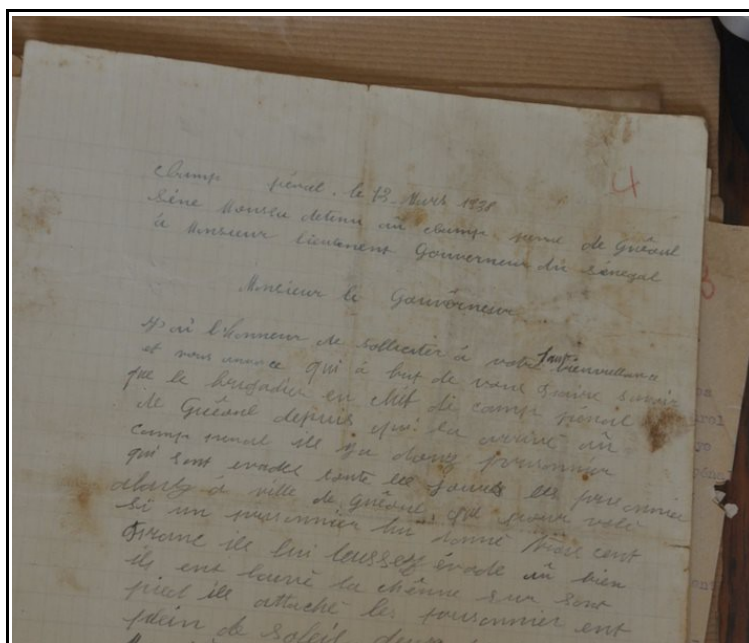 4
Camp pénal, le 13 Mars 1938
Sène Moussa detenu au camp penal de Guéoul
à Monsieur lieutenant Gouverneur du Sénégal
Monsieur le Gouverneur
J'ai l'Honneur de solliciter à votre haute bienveillance
et vous annonce qui à but de vous faire savoir
que le brigadier en chef de camp pénal
de Guéoul depuis qui la arrivé au
camp penal ile ya dans prisonnier
qui sont evadés toute les jours les prisonnier
à ville de Guéoul, que pour volé
si un prisonnier lui donné trois cent
Franc ile lui laissez évade au bien
ils ent la chênne sur sont
pied ile attaché les prisonnier ent
plein de soleil deux
3